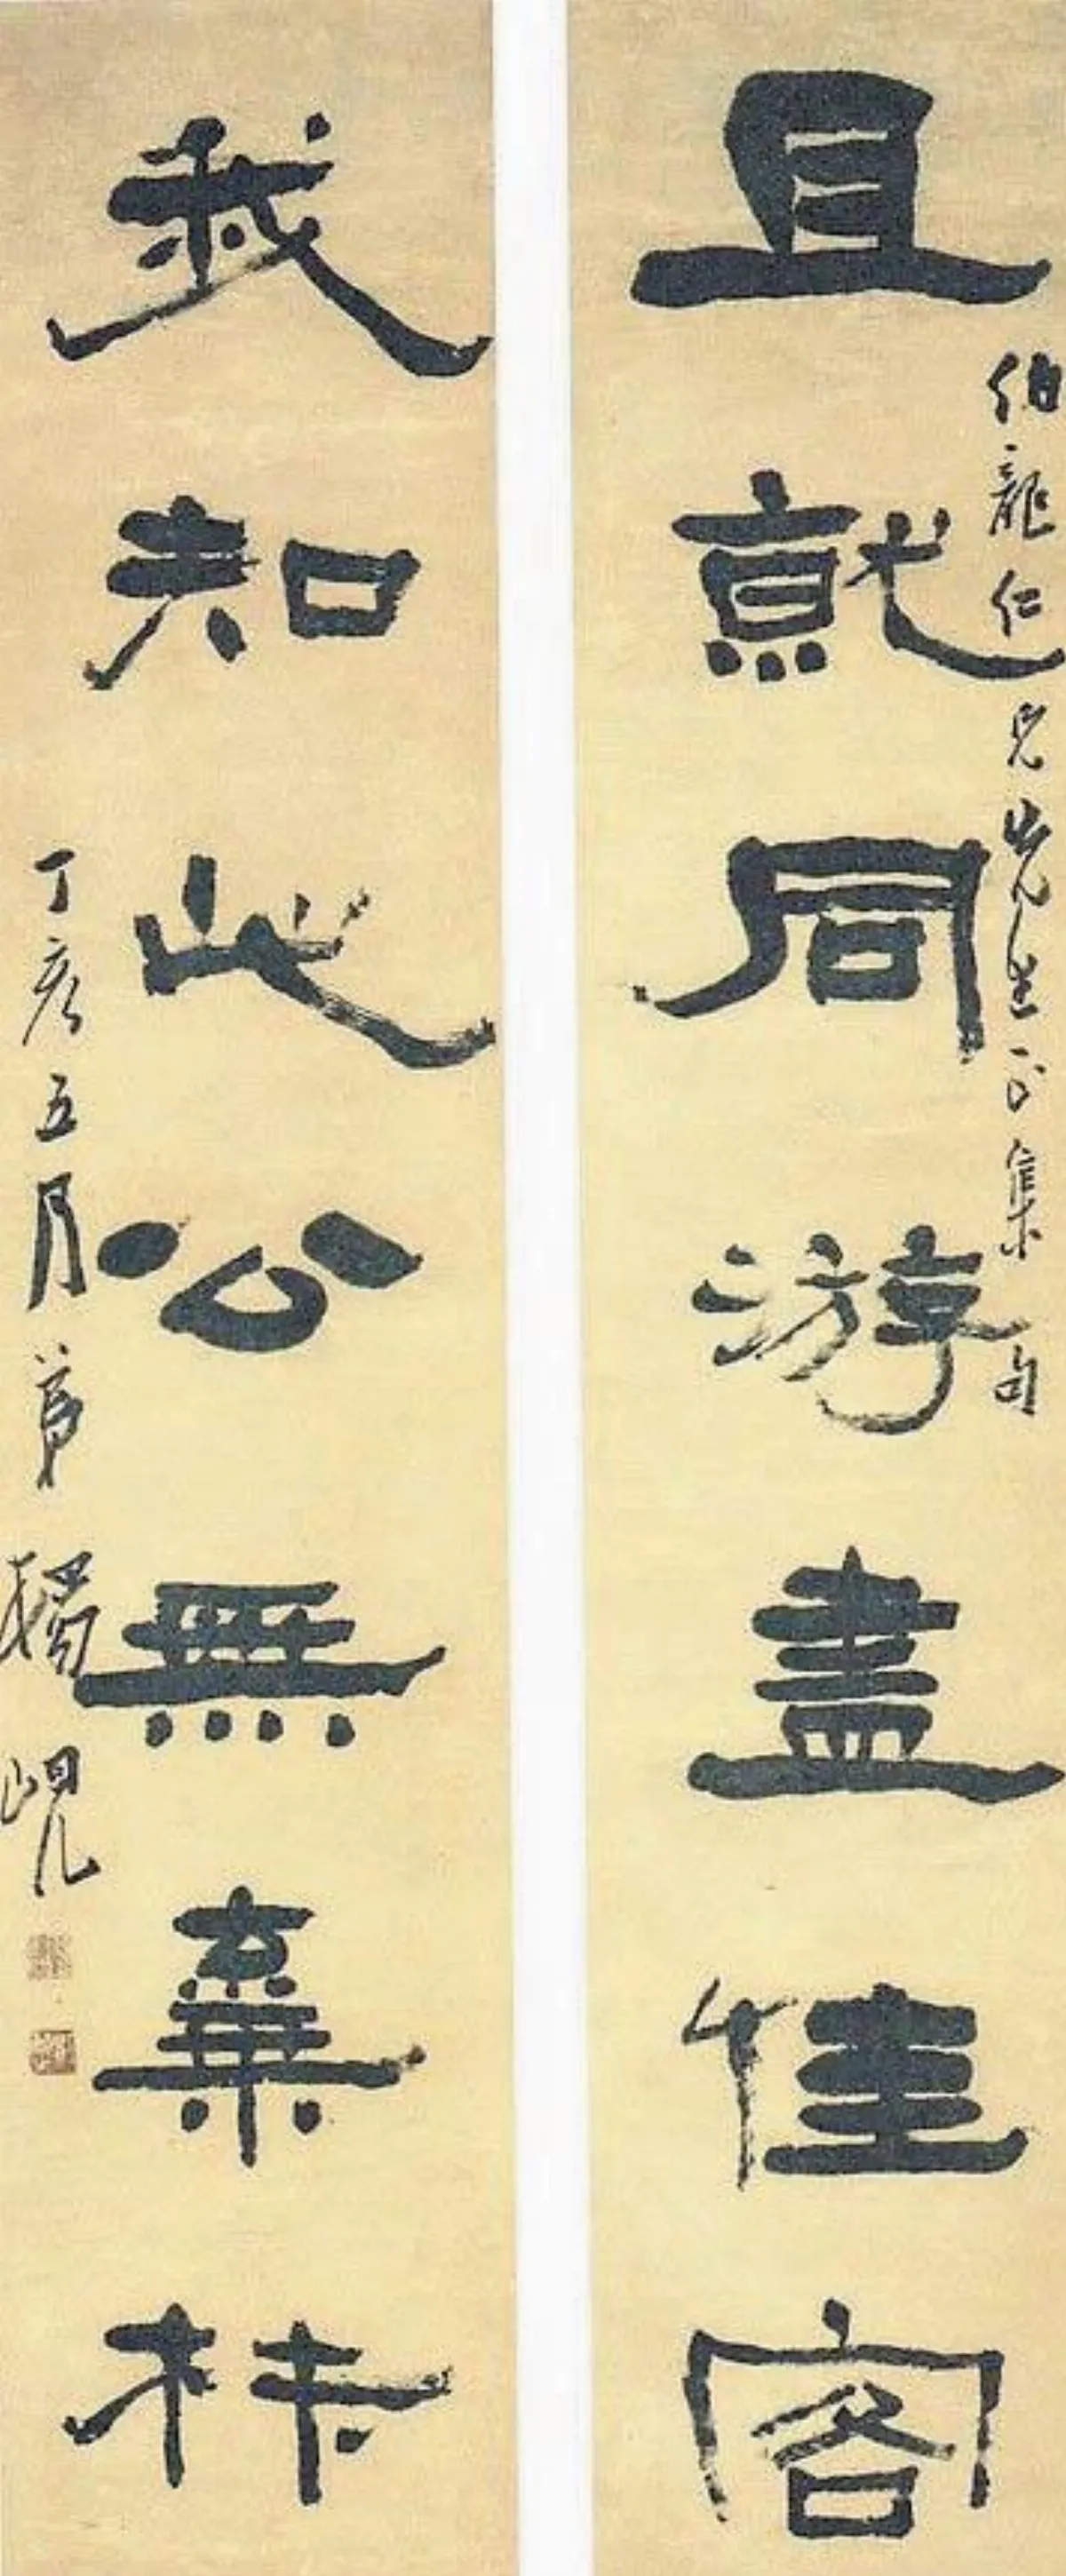 伯龍仁兄先生正集句
且就同游盡佳客
我知此公無棄材
丁亥五月弟楊峴